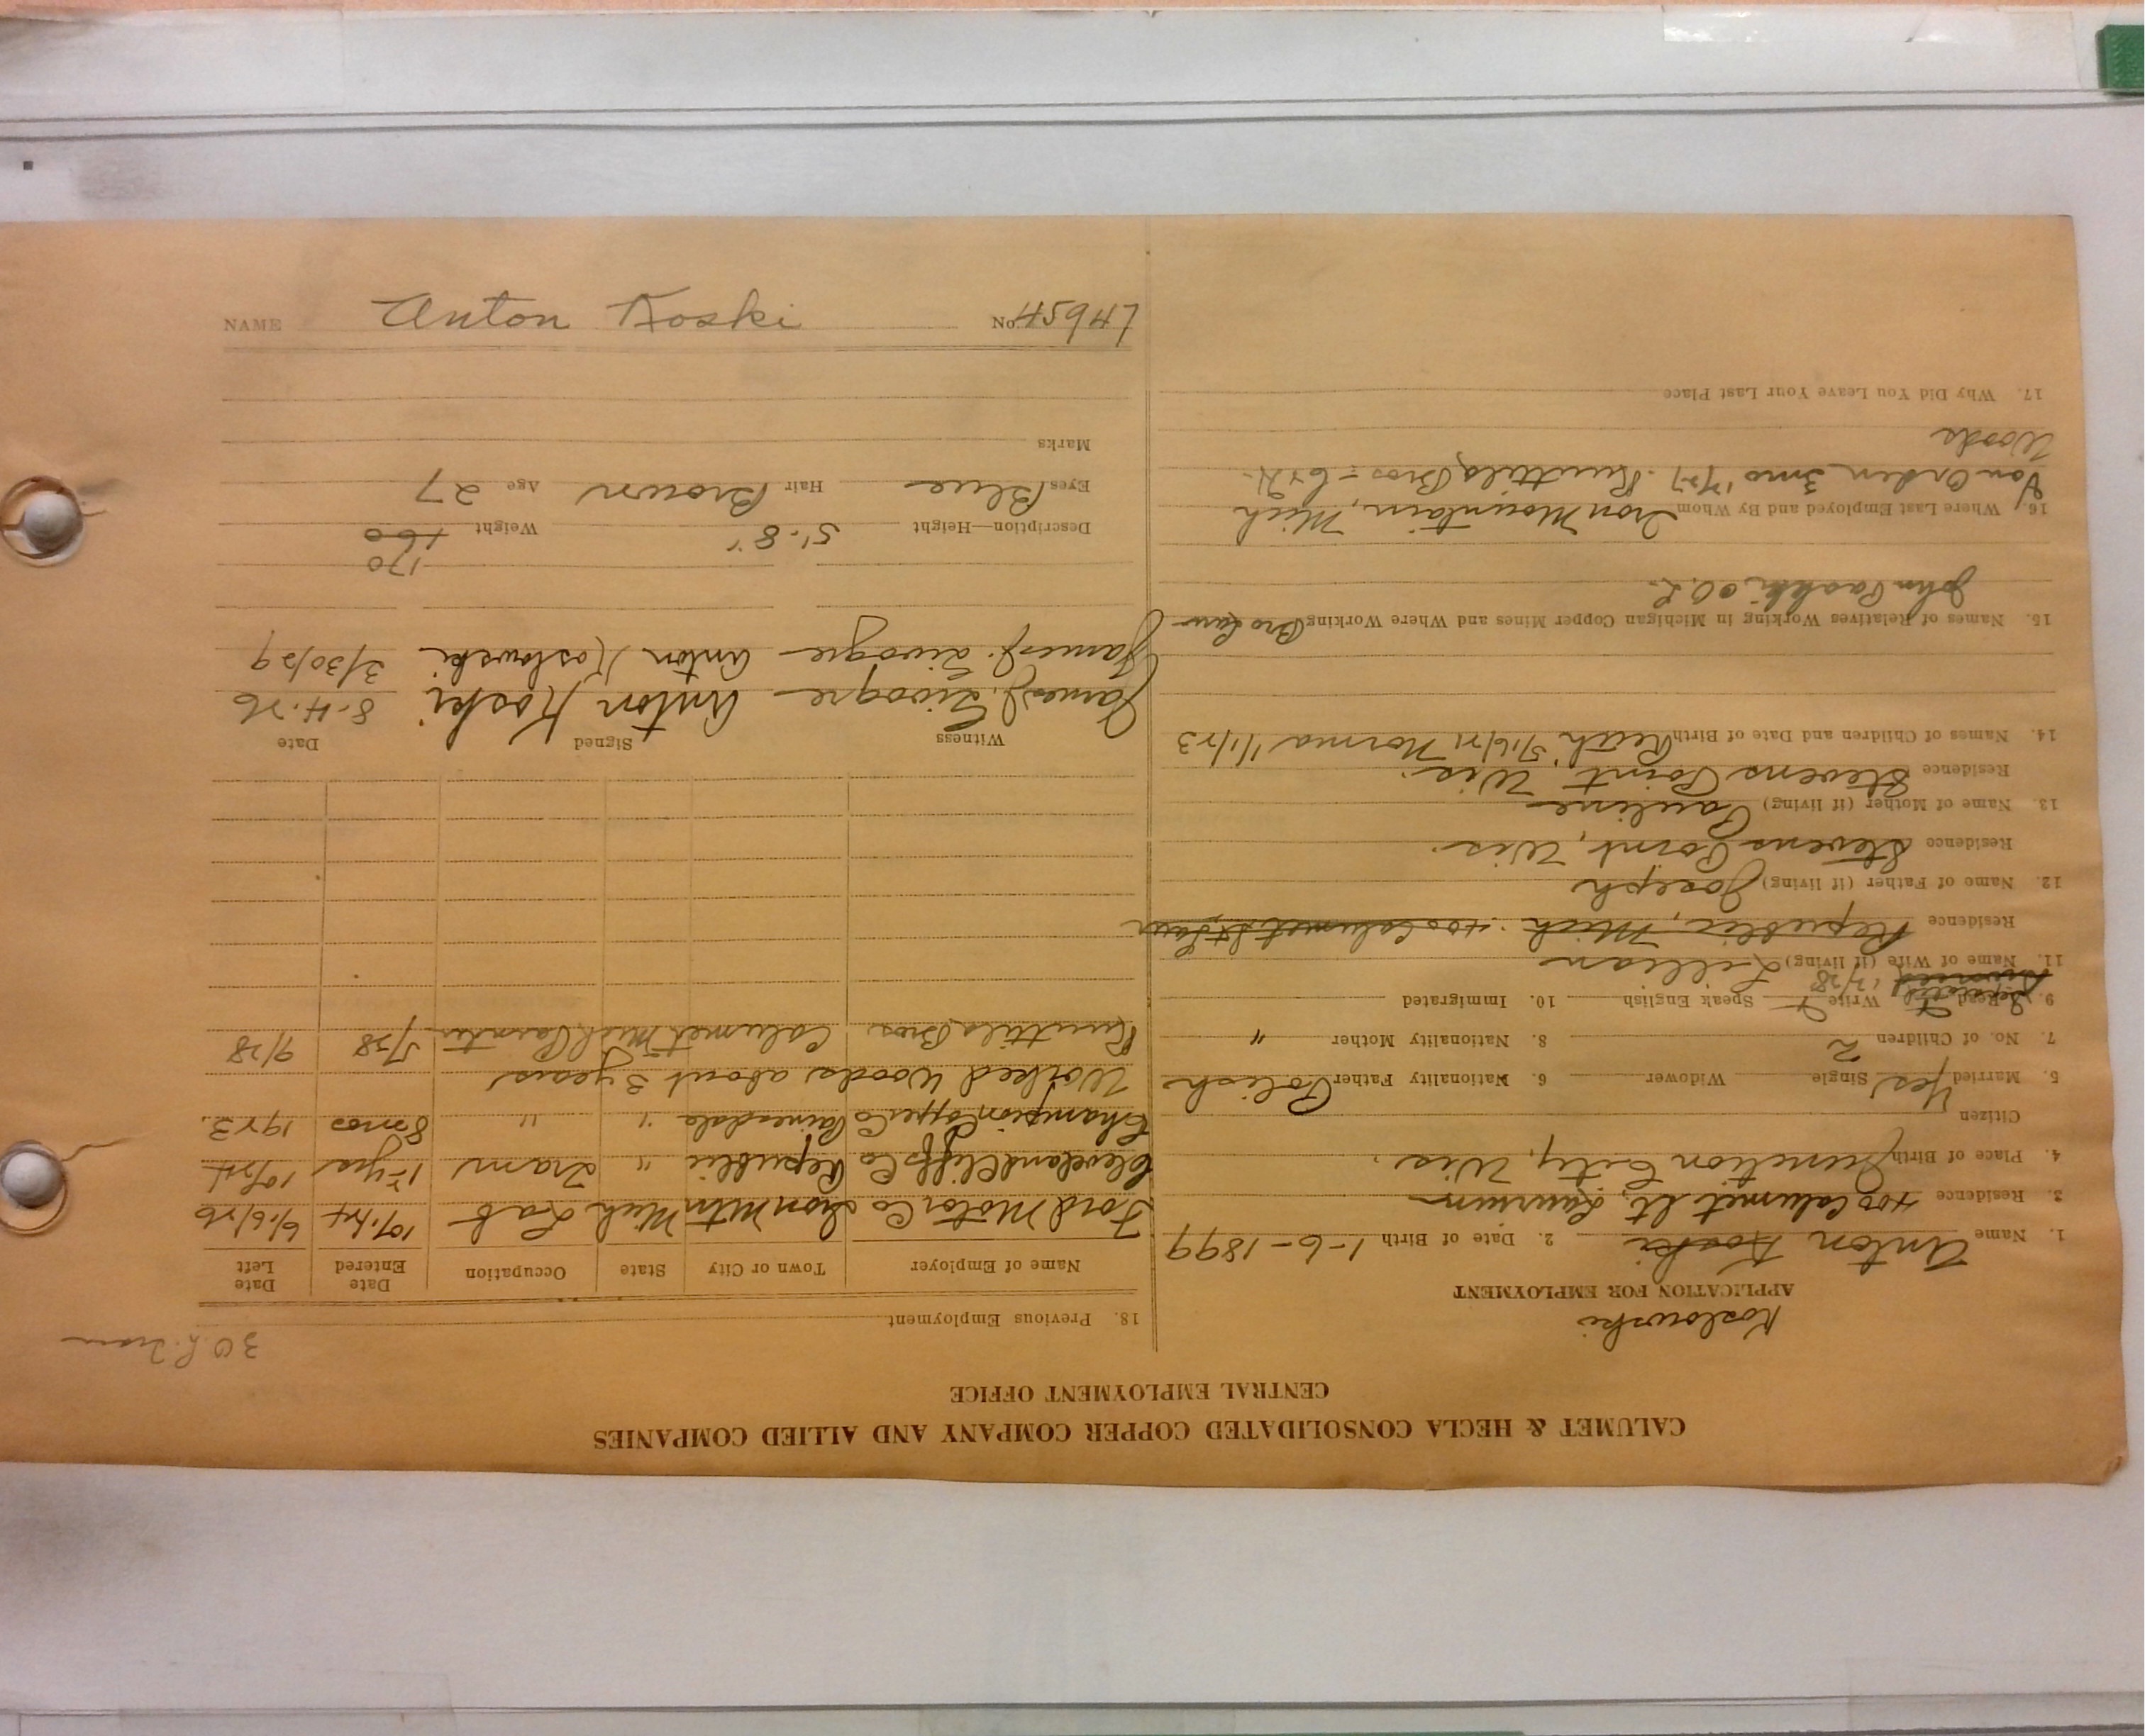 CALUMET & HECLA CONSOLIDATED COPPER COMPANY AND ALLIED COMPANIES
CENTRAL EMPLOYMENT OFFICE
Koslowski
APPLICATION FOR EMPLOYMENT
1. Name Anton Koski 2. Date of Birth 1-6-1899
3. Residence 400 Calumet St, Laurium
4. Place of Birth Junction City, Wis.
Citizen
5. Married Yes Single Widower 6. Nationality Father Polish
7. No. of Children 2 8. Nationality Mother "
9. Read Write Speak English 10. Immigrated
11. Name of Wife (if living) Lillian
Residence Republic, Mich. 400 Calumet St Laur
12. Name of Father (if living) Joseph
Residence Stevens Point, Wis.
13. Name of Mother (if living) Pauline
Residence Stevens Point, Wis.
14. Names of Children and Date of Birth 5/16/21 Norma 1/1/23
15. Names of Relatives Working in Michigan Copper Mines and Where Working Bro Law
John
16. Where Last Employed and By Whom Iron Mountain, Mich
Van Orden 3 mo Ruuttila Bros
Woods
17. Why Did You Leave Your Last Place
30 Tram
18. Previous Employment
Name of Employer Town or City State Occupation Date Entered Date Left
Ford Motor Co Iron Mtn Mich Lab 6/16/26
Cleveland Cliffs Co Republic " Tram
Champion Copper Co Painesdale " " 8 mos 1923.
Worked Woods about 3 years
Ruuttila Bros. Calumet Mich 9/28
Witness Signed Date
James J. Anton Koski 8-4-26
James J. Anton Koslowski 3/30/29
170
Description—Height 5'-8" Weight 160
Eyes Blue Hair Brown Age 27
Marks
NAME Anton Koski No.